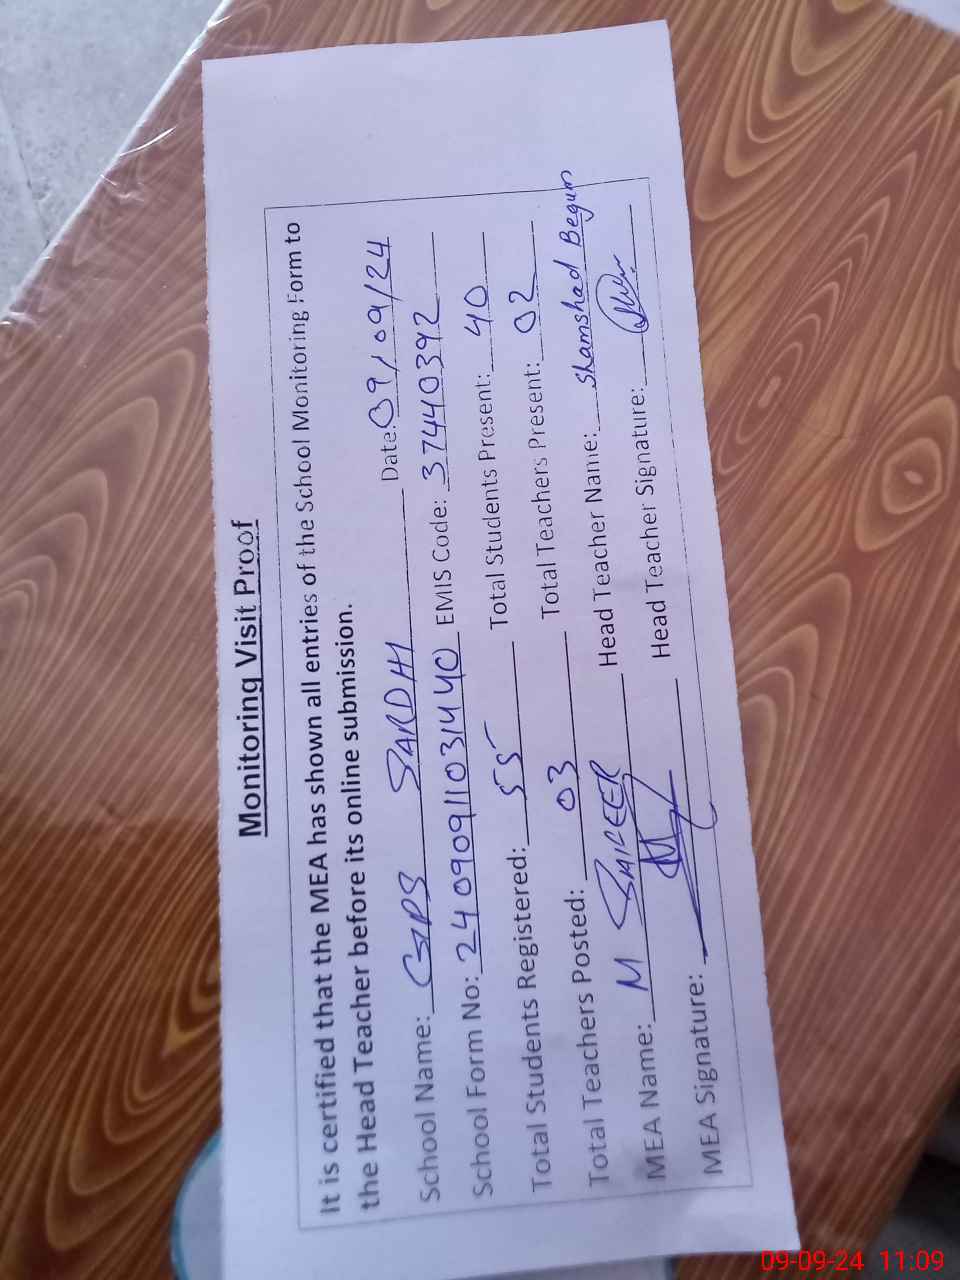 Monitoring Visit Proof
It is certified that the MEA has shown all entries of the School Monitoring Form to
the Head Teacher before its online submission.
School Name: GPS SARDHI Date: 09/09/24
School Form No: 240909110311440 EMIS Code: 37440392
Total Students Registered: 55 Total Students Present: 40
Total Teachers Posted: 03 Total Teachers Present: 02
MEA Name: M Head Teacher Name: Shamshad Begum
MEA Signature: Head Teacher Signature:
09-09-24 11:09